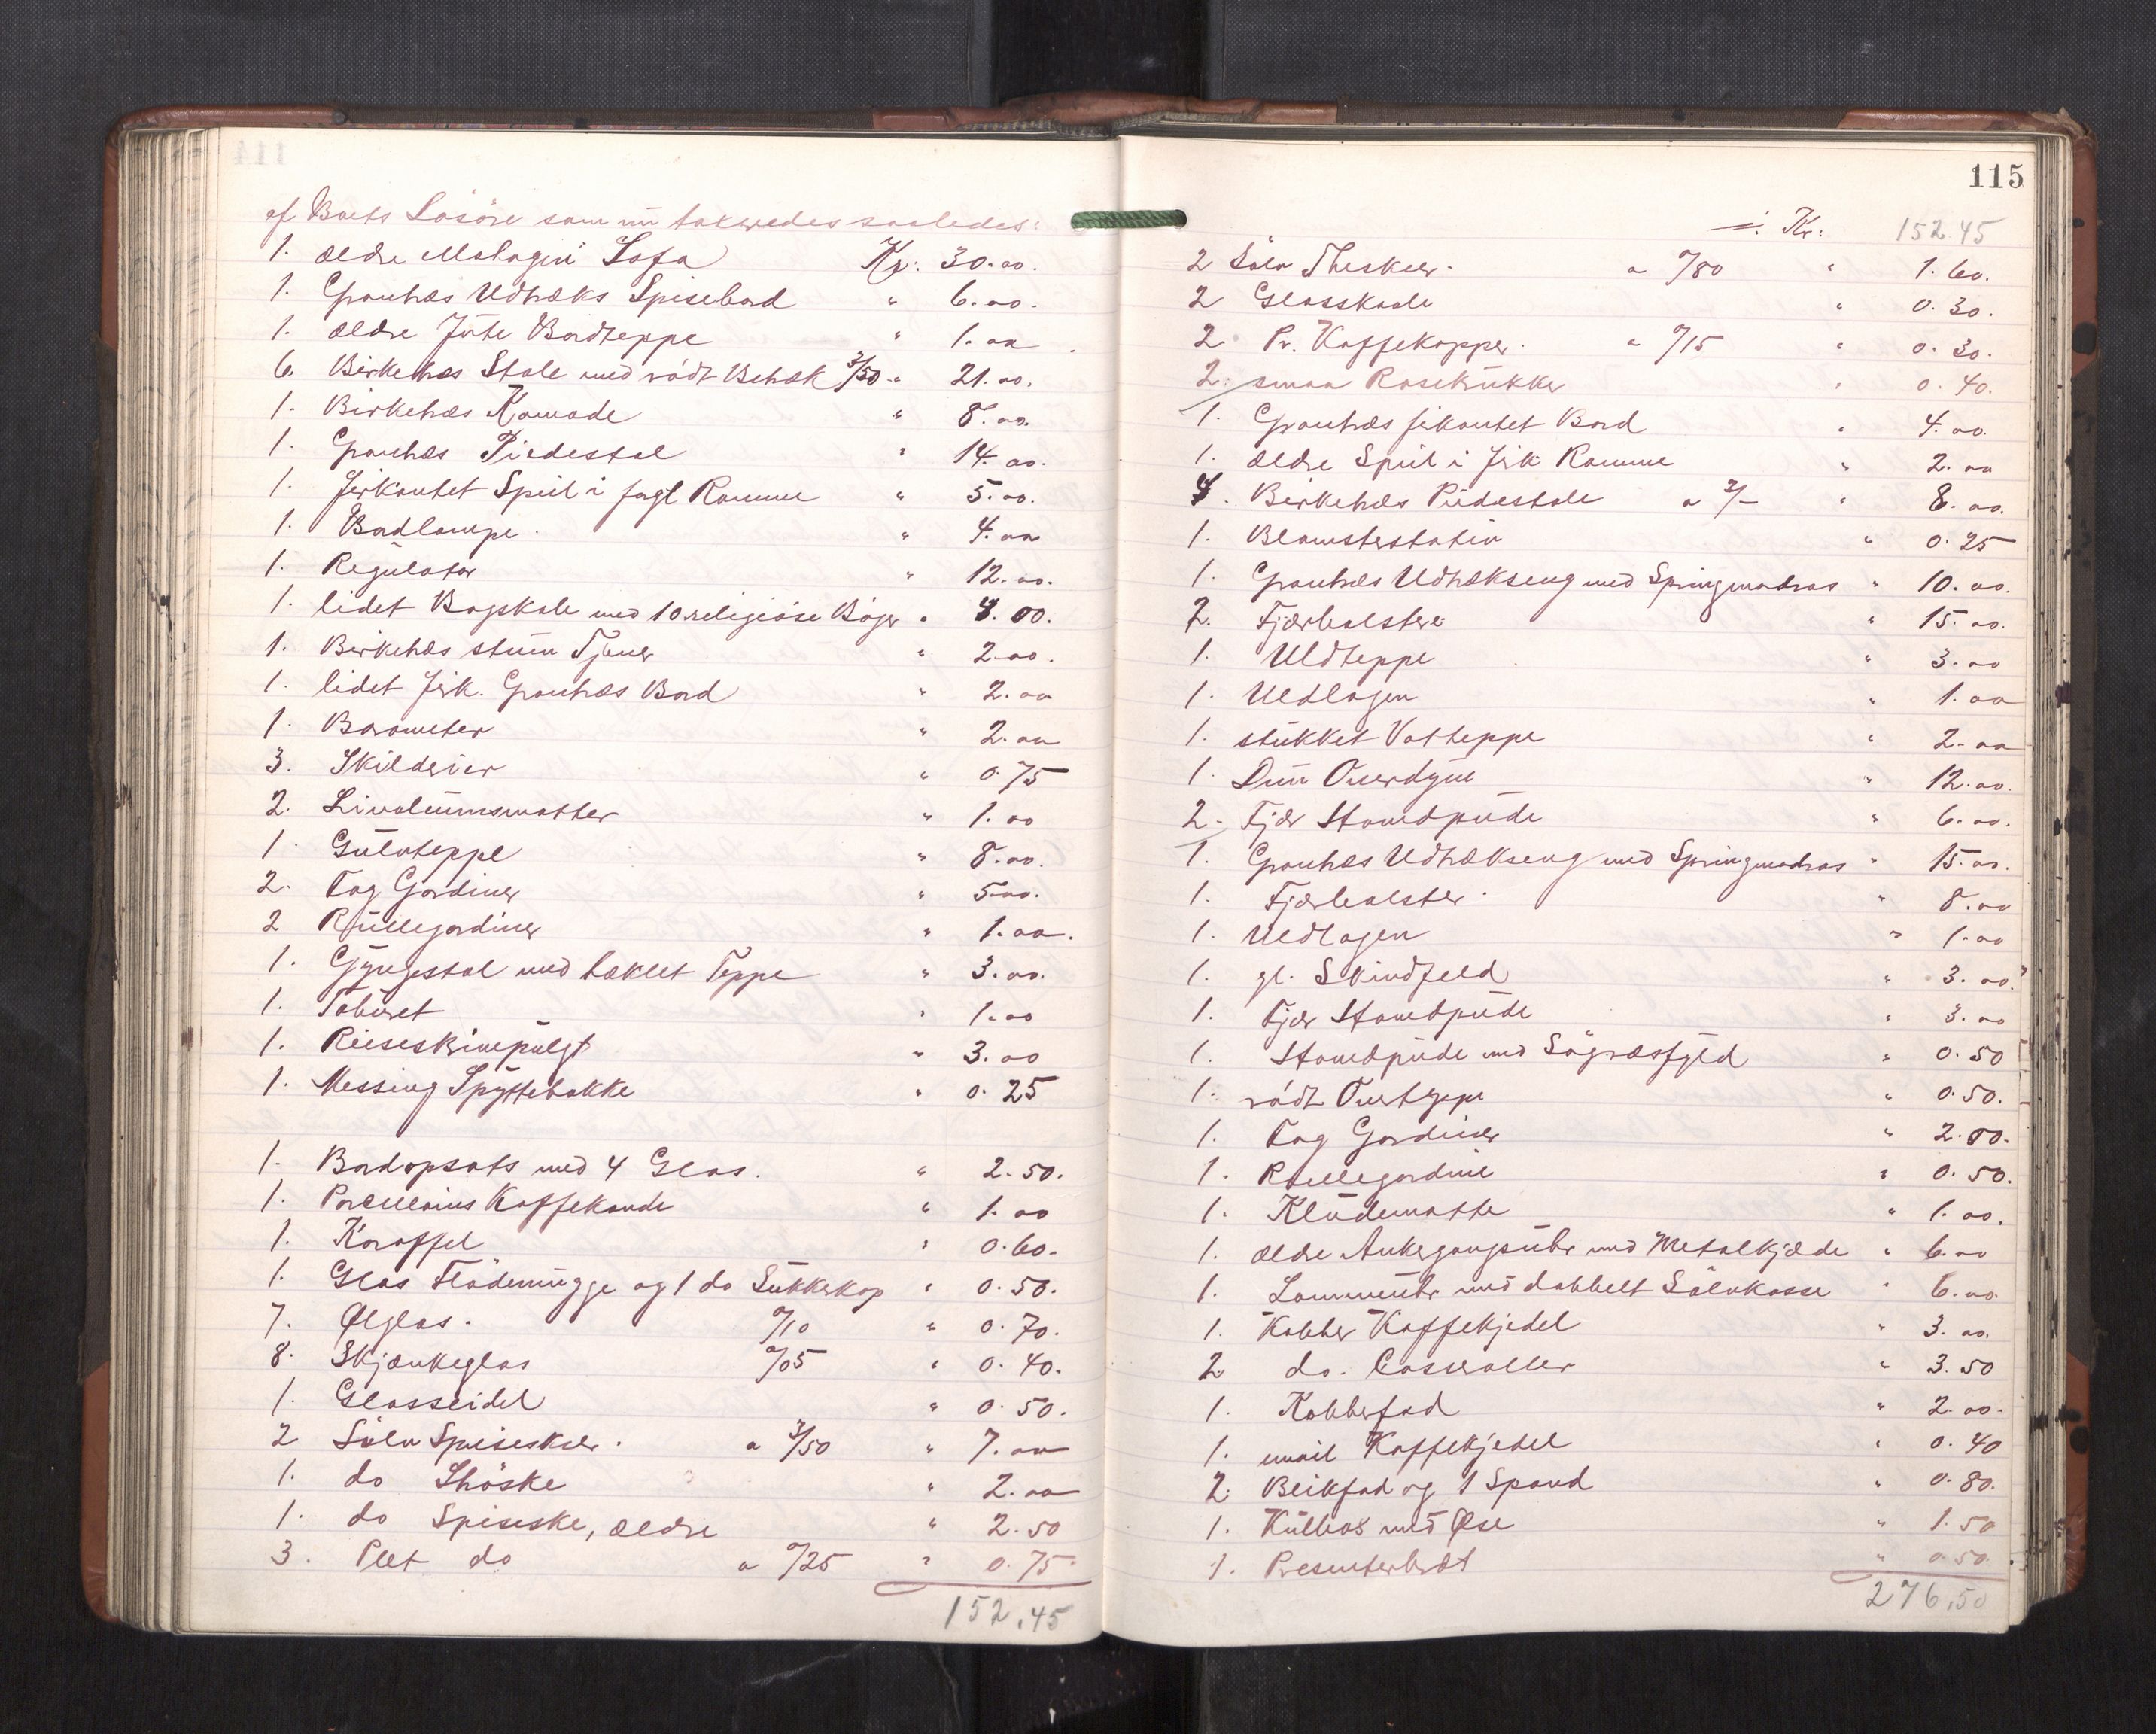 114
af Boets Løsøre som nu taxeredes saaledes:
1. ældre Mahogni Sofa Kr. 30.00.
1. Grantræs Udtræks Spisebord " 6.00.
1. ældre Jute Bordteppe " 1.00
6. Birketræs Stole med rødt Betræk 3/50 " 21.00.
1. Birketræs Komode " 8.00.
1. Grantræs Piedestal " 14.00.
1. firkantet Speil i forgt Ramme " 5.00.
1. Bordlampe. " 4.00
1. Regulator " 12.00.
1. lidet Bogskab med 10 religiøse Bøger " 4.00.
1. Birketræs stum Tjener " 2.00.
1. lidet firk. Grantræs Bord " 2.00
1. Barometer " 2.00
3. Skilderier " 0.75
2. Linoleumsmatter " 1.00
1. Gulvteppe " 8.00.
2. Fag Gardiner " 5.00.
2 Rullegardiner " 1.00.
1. Gyngestol med hæklet Teppe " 3.00.
1. Taburet " 1.00
1. Reiseskrinpulgt " 3.00
1. Messing Spyttebakke " 0.25
1. Bordopsats med 4 Glas. " 2.50.
1. Porcellains Kaffekande " 1.00
1. Karaffel " 0.60.
1. Glas Flødemugge og 1 do Sukkerkop " 0.50.
7. Ølglas. 0/10 " 0.70.
8. Skjænkeglas 0/05 " 0.40.
1. Glasseidel " 0.50.
2 Sølv Spiseskeer. a 3/50 " 7.00
1. do Theske " 2.00
1. do Spiseske, ældre " 2.50
3. Plet do a 0/25 " 0.75
152,45
115
./. Kr. 152.45
2 Sølv Theskeer. a 0/80 " 1.60.
2 Glasskaale " 0.30.
2 Pr. Kaffekopper. a 0/15 " 0.30.
2. smaa Rosekrukker " 0.40.
1. Grantræs firkantet Bord " 4.00.
1. ældre Speil i firk Ramme " 2.00
4. Birketræs Piedestale a 2/- " 8.00.
1. Blomsterstativ " 0.25
1. Grantræs Udtrækseng med Springmadras " 10.00.
2. Fjærbolstere " 15.00.
1. Uldteppe " 3.00
1. Uldlagen " 1.00
1. stukket Vatteppe " 2.00
1. Dun Overdyne " 12.00.
2. Fjær Hovedpude " 6.00.
1. Grantræs Udtrækseng med Springmadras " 15.00.
1. Fjærbolster. " 8.00
1. Uldlagen " 1.00
1. gl. Skindfeld " 3.00.
1. Fjær Hovedpude " 3.00
1. Hovedpude med Søgræsfyld " 0.50
1. rødt Overteppe " 0.50.
1. Fag Gardiner " 2.00.
1. Rullegardine " 0.50.
1. Kludematte " 1.00.
1. ældre Ankergangsuhr med Metalkjæde " 6.00
1. Lommeuhr med dobbelt Sølvkasse " 6.00.
1. Kobber Kaffekjedel " 3.00.
2 do. Casseroller " 3.50
1. Kobberfad " 2.00.
1. email Kaffekjedel " 0.40
2. Blikfad og 1 Spand " 0.80.
1. Kulbox med Øse " 1.50
1. Presenterbræt " 0.50.
276,50